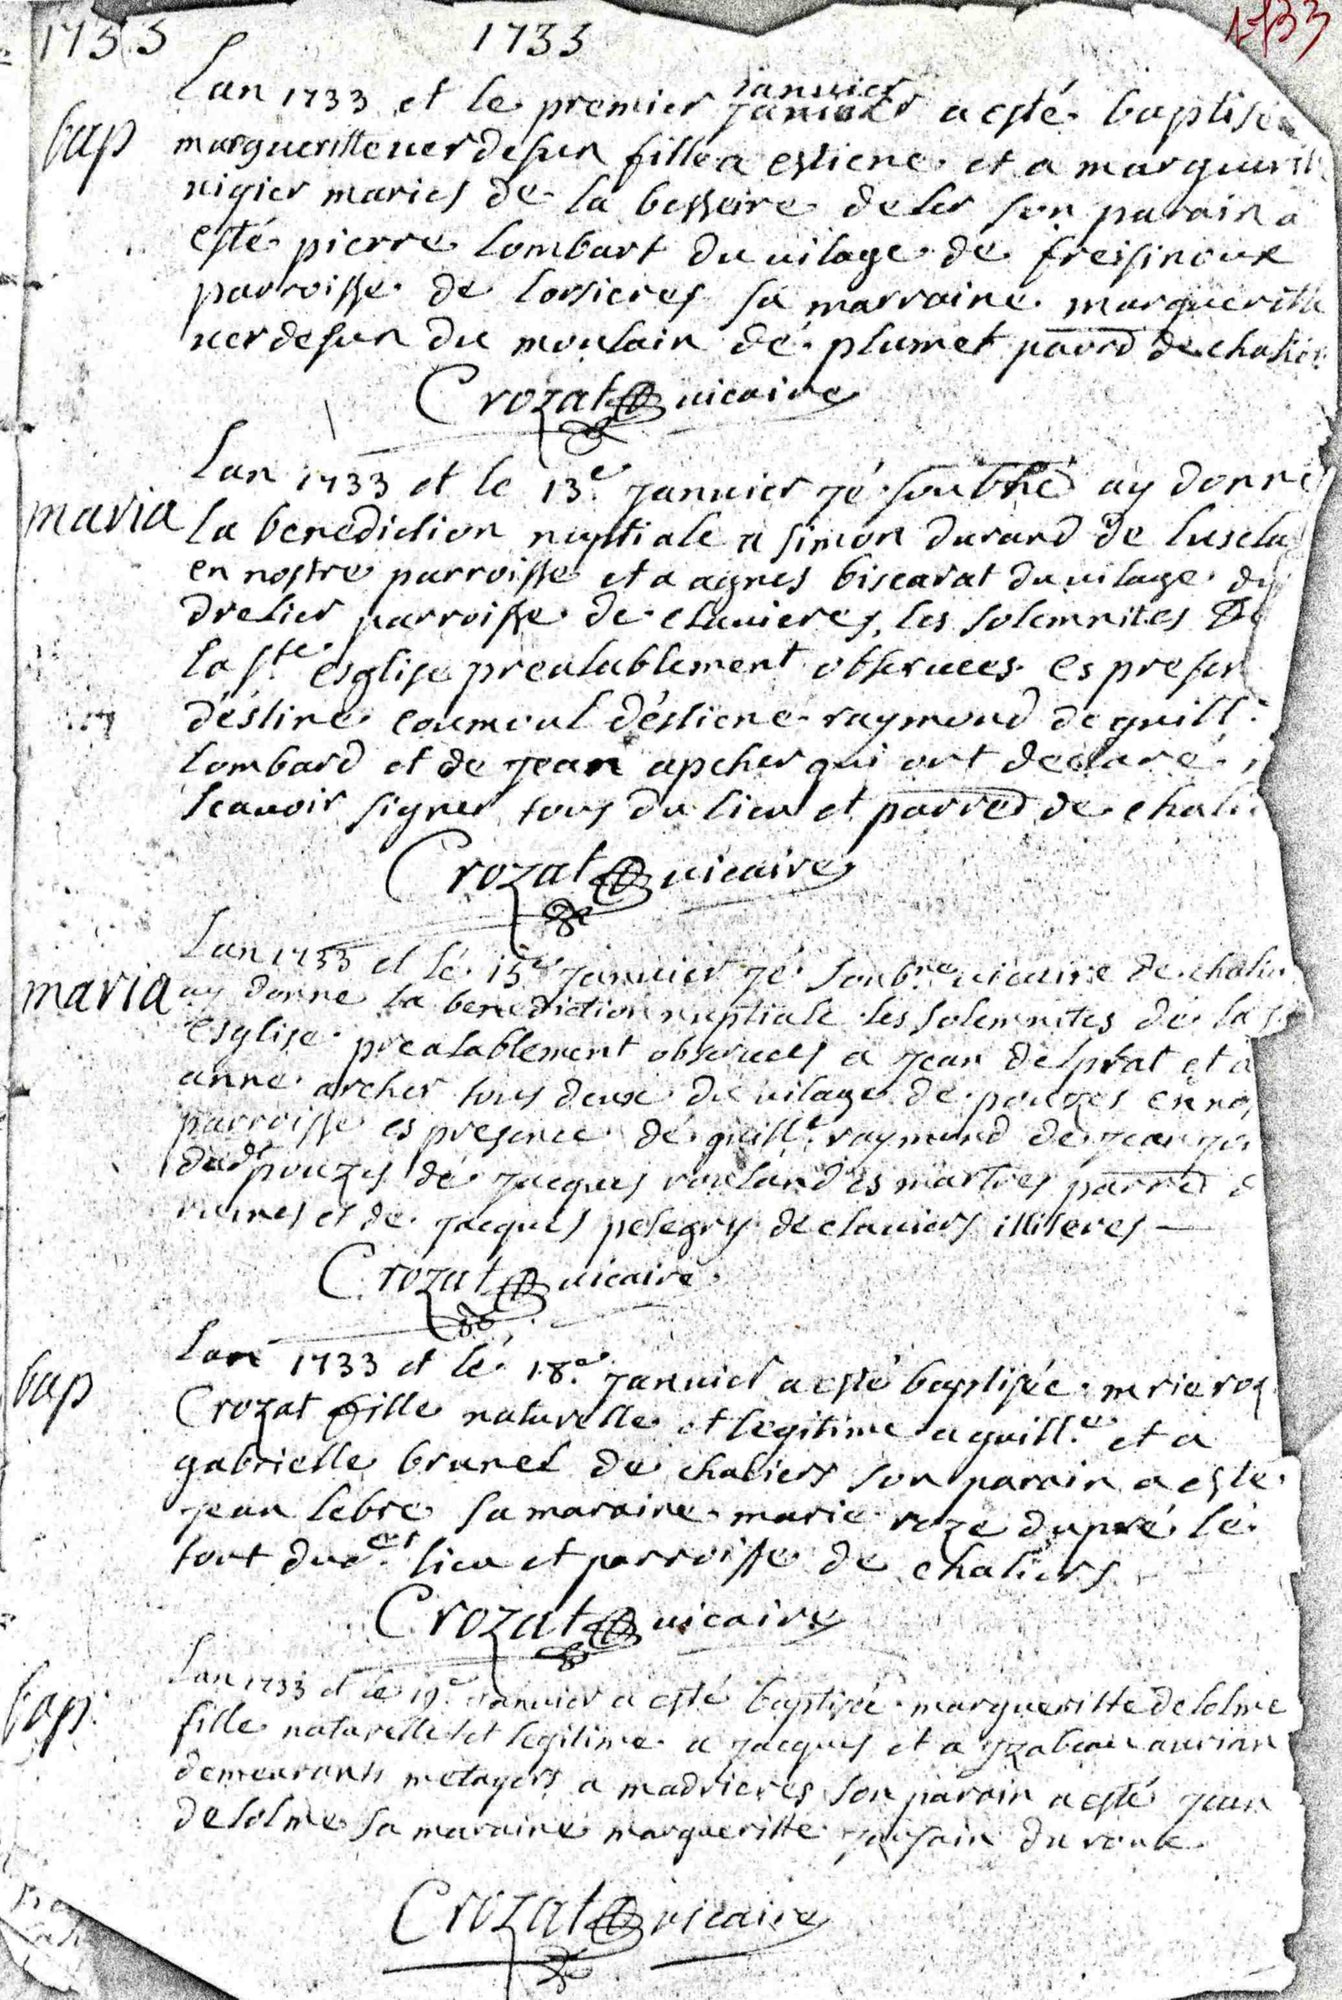 1733 1733 1733
Lan 1733 et le premier janvier janvier a esté baptisée
bap
margueritte verdesun fille a estiene et a marguerit
nigier mariés de la besseire de ler son parain a
esté pierre lombart du vilage de freisinoux
parroisse de lorsieres sa marraine margueritte
verdesun du moulain de plumet parrd de chaliers
Crozat vicaire
Lan 1733 et le 13e janvier jé soubné ay donné
maria
la benediction nuptiale a simon durand de luscla
en nostre parroisse et a agnes biscarat du vilage du
drelier parroisse de clavieres, les solemnites de
la ste esglise prealablement observees es presen
d'éstine coumoul d'éstiene raymond de guill
lombard et de jean apcher qui ont declaré
scavoir signer tous du lieu et parred de chali
Crozat vicaire
Lan 1733 et lé 15e janvier jé soubne vicaire de chalie
maria
ay donne la benediction nuptiale les solemnites de la s
esglise prealablement observees a jean delprat et a
anne archer tous deux du vilage de pouzes en no
parroisse es presence de guillt raymond de jean
dudt pouzes dé jacques rouland es martres parred d
ruines et de jacques pelegry de claviers illiteres
Crozat vicaire
Lan 1733 et lé 18e janvier a esté baptisée mrie roz
bap
Crozat fille naturelle et legitime a guill.e et a
gabrielle brunel de chaliers son parain a esté
jean lebre sa maraine marie roze dupré le
tout dudet lieu et parroisse de chaliers
Crozat vicaire
Lan 1733 et le 19e janvier a esté baptisée margueritte delolme
bap
fille naturelle et legitime a jacques et a yzabeau
demeurants metayers a madrieres son parain a esté jean
delolme sa maraine margueritte du roux
Crozat vicaire